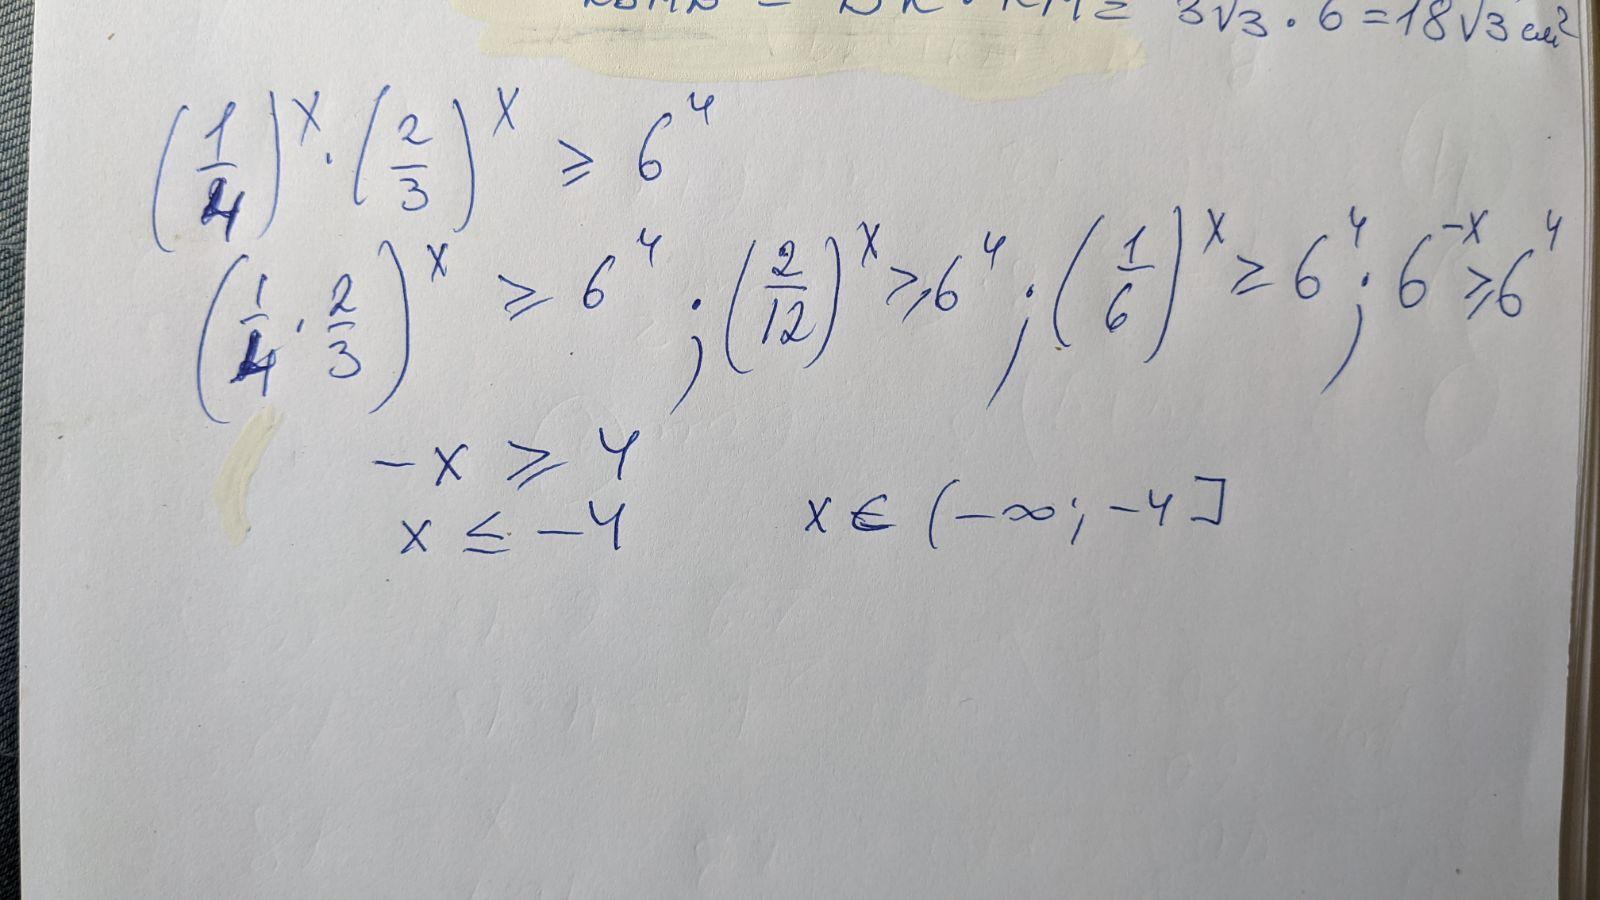 = 3√3 · 6 = 18√3 см²
(1/4)^x · (2/3)^x ≥ 6^4
(1/4 · 2/3)^x ≥ 6^4 ; (2/12)^x ≥ 6^4 ; (1/6)^x ≥ 6^4 ; 6^-x ≥ 6^4
-x ≥ 4
x ≤ -4 x ∈ (-∞; -4]